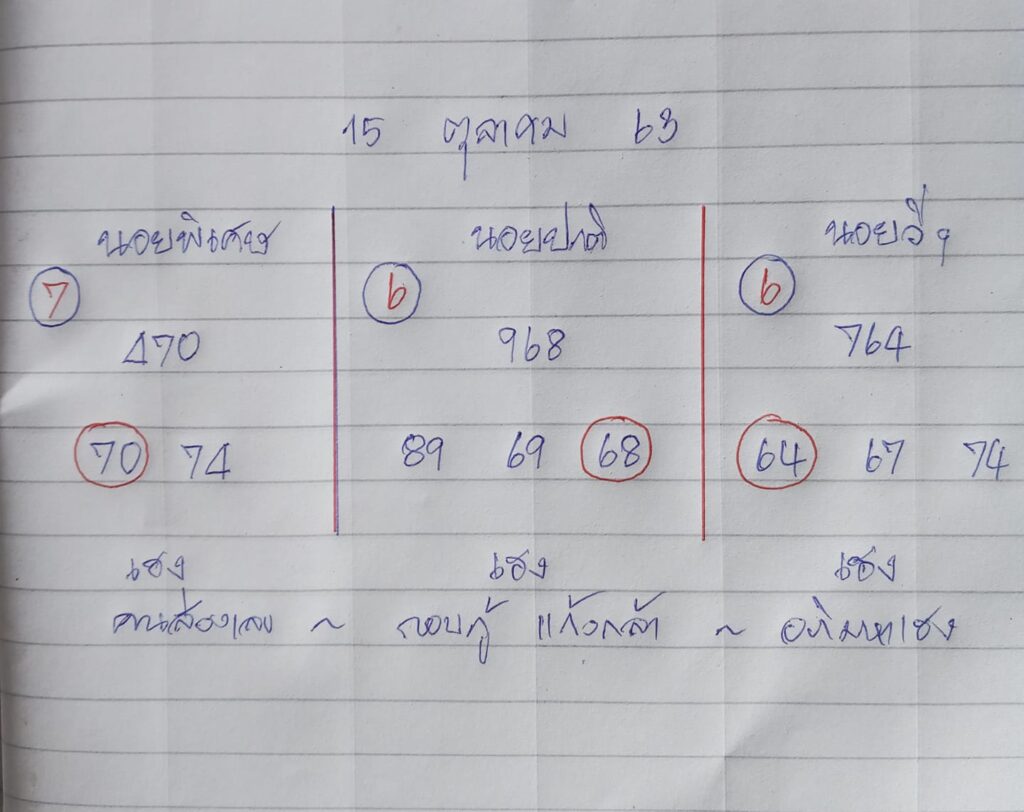 15 ตุลาคม 63
นอยพิเศษ นอยปกติ นอยวี ๆ
7 6 6
470 968 764
70 74 89 69 68 64 67 74
เฮง เฮง เฮง
คนส่องเลข ~ กอบกู้ แก้วกล้า ~ อภิมหาเฮง